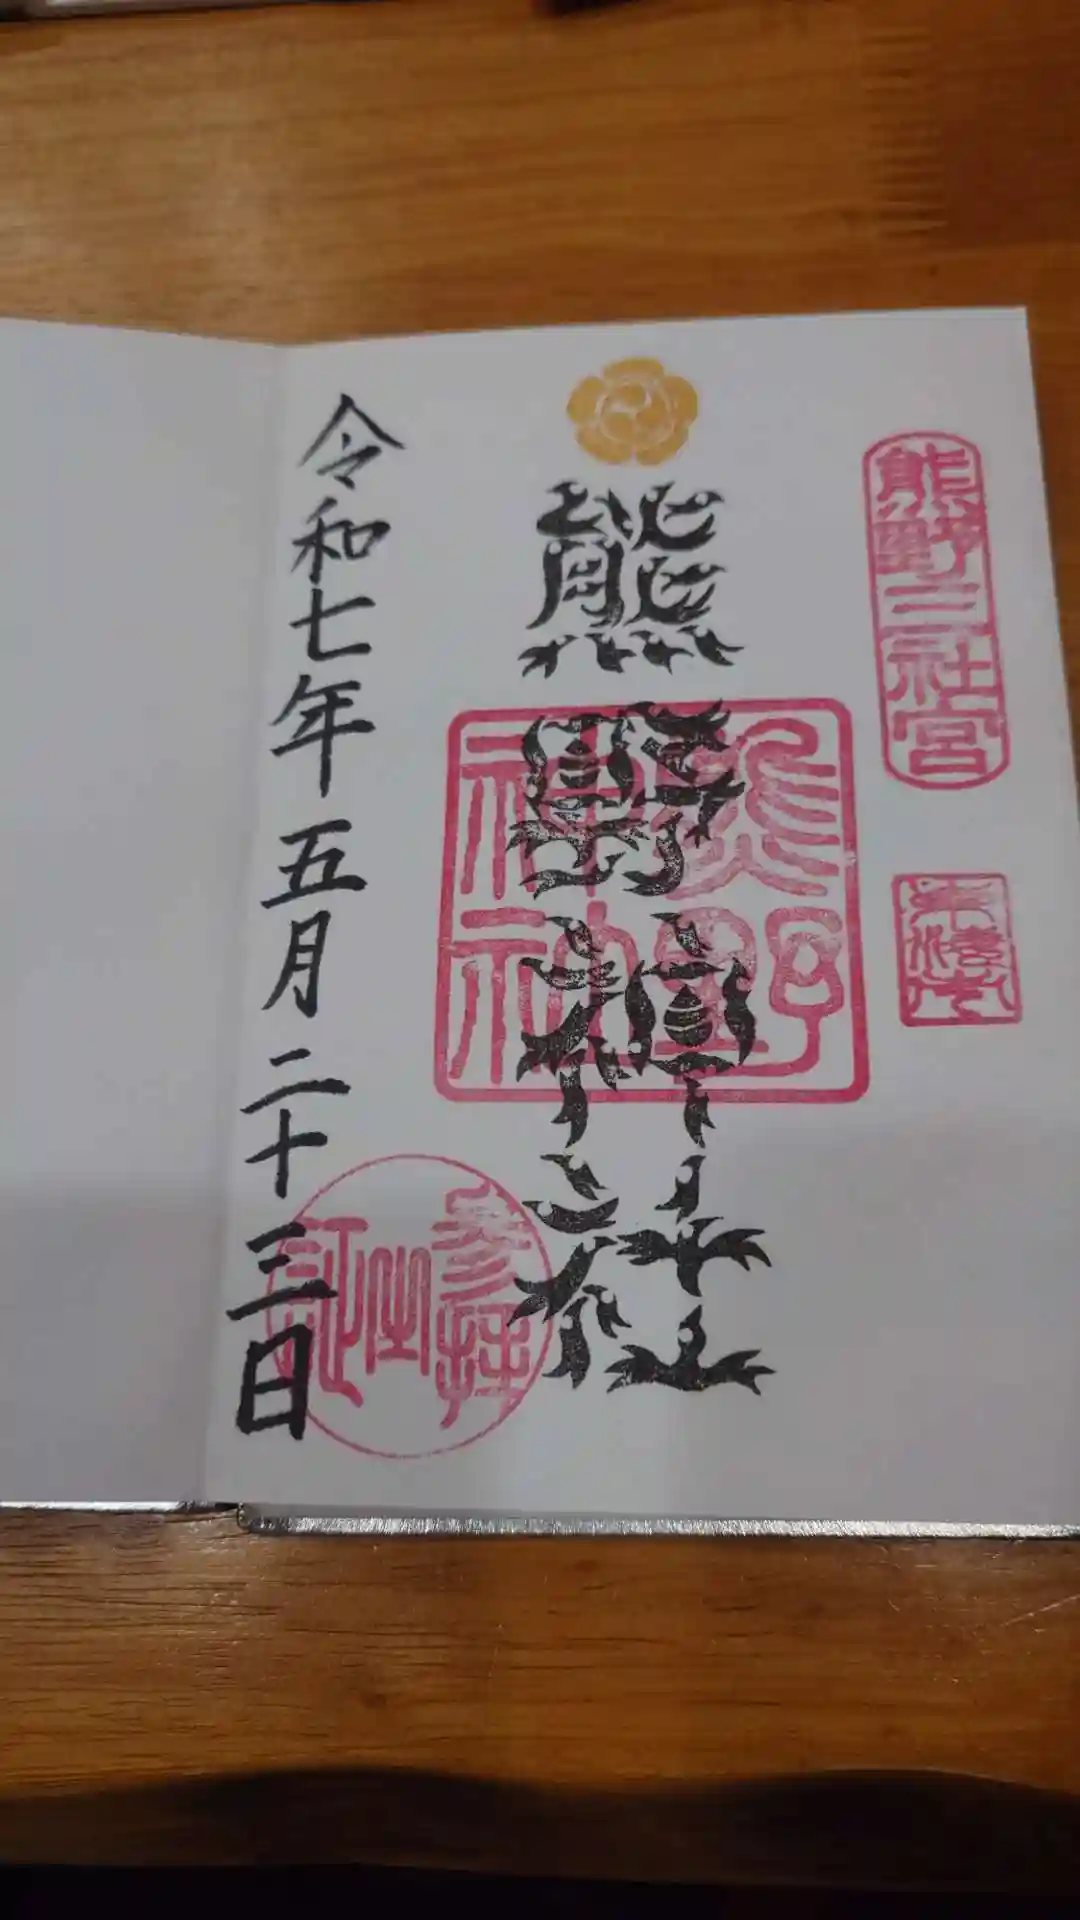 熊野三社宮
熊野神社
熊野神社
参拝
之
証
令和七年五月二十三日